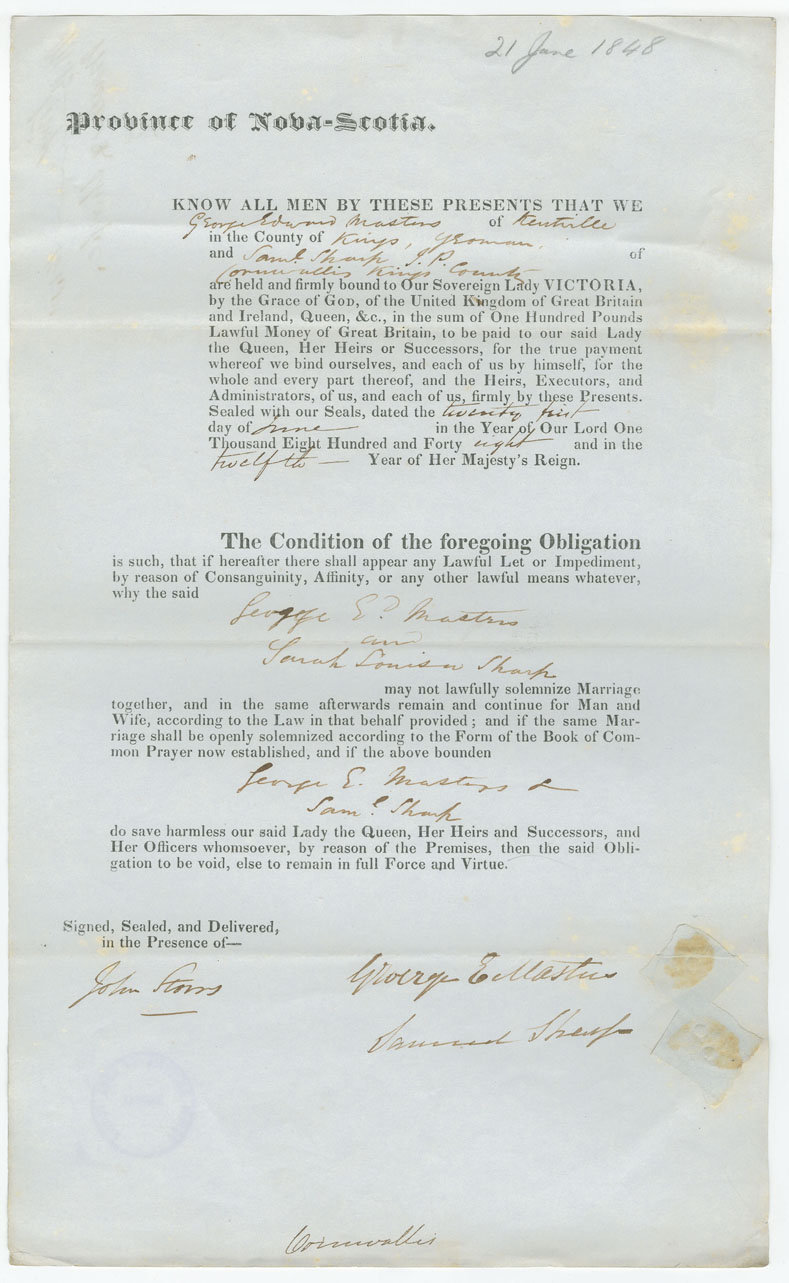 21 June 1848
Province of Nova-Scotia.
KNOW ALL MEN BY THESE PRESENTS THAT WE
George Edward Masters of Kentville
in the County of Kings, Yeoman,
and Saml. Sharp J.P. of
Cornwallis Kings County
are held and firmly bound to Our Sovereign Lady VICTORIA,
by the Grace of GOD, of the United Kingdom of Great Britain
and Ireland, Queen, &c., in the sum of One Hundred Pounds
Lawful Money of Great Britain, to be paid to our said Lady
the Queen, Her Heirs or Successors, for the true payment
whereof we bind ourselves, and each of us by himself, for the
whole and every part thereof, and the Heirs, Executors, and
Administrators, of us, and each of us, firmly by these Presents.
Sealed with our Seals, dated the twenty first
day of June in the Year of Our Lord One
Thousand Eight Hundred and Forty eight and in the
twelfth — Year of Her Majesty's Reign.
The Condition of the foregoing Obligation
is such, that if hereafter there shall appear any Lawful Let or Impediment,
by reason of Consanguinity, Affinity, or any other lawful means whatever,
why the said
George Ed. Masters
and
Sarah Louisa Sharp
may not lawfully solemnize Marriage
together, and in the same afterwards remain and continue for Man and
Wife, according to the Law in that behalf provided; and if the same Mar-
riage shall be openly solemnized according to the Form of the Book of Com-
mon Prayer now established, and if the above bounden
George E. Masters &
Saml. Sharp
do save harmless our said Lady the Queen, Her Heirs and Successors, and
Her Officers whomsoever, by reason of the Premises, then the said Obli-
gation to be void, else to remain in full Force and Virtue.
Signed, Sealed, and Delivered,
in the Presence of—
John Storrs
George E Masters
Samuel Sharp
Cornwallis